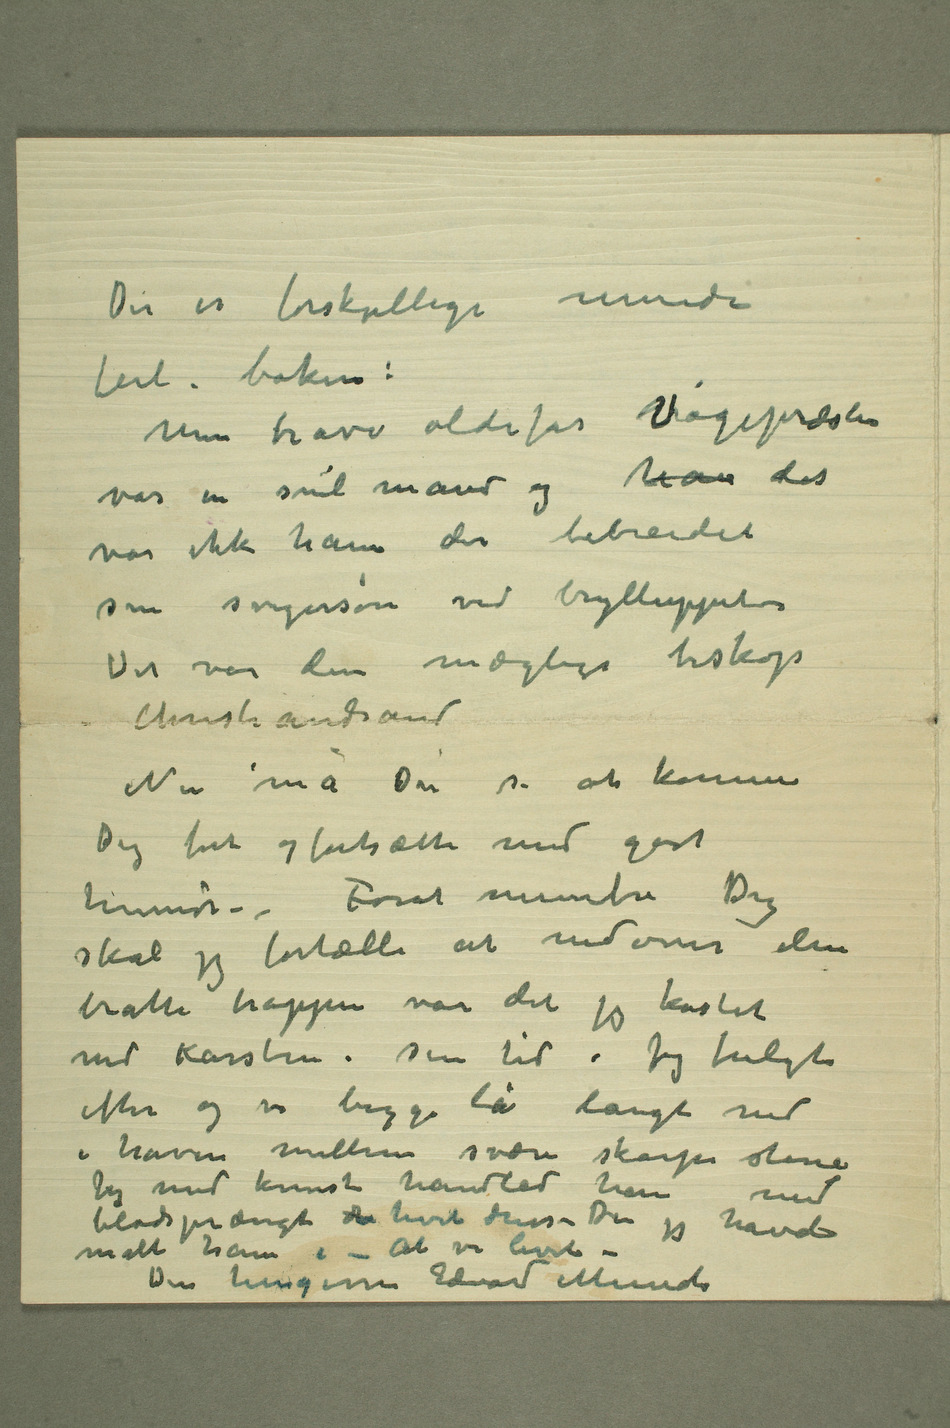 Der er forskjellige mindre
feil i boken:
Min brave oldefar Vågepræsten
var en snil mand og han det
var ikke ham der bebreidet
sin svigersøn ved brylluppet –
Det var den mægtige biskop
i Christiandsand
Nu må Du se at komme
Dig fort og fortsætte med godt
humør – – Forat muntre Dig
skal jeg fortælle at nedover den
bratte trappen var det jeg kastet
ned Karsten i sin tid – Jeg fulgte
efter og vi begge lå langt ned
i haven mellem svære skarpe stene
Jeg med knust håndled han med
blodsprængt hvit dress – Den jeg havde
malt ham i – At vi levet –
Din hengivne Edvard Munch